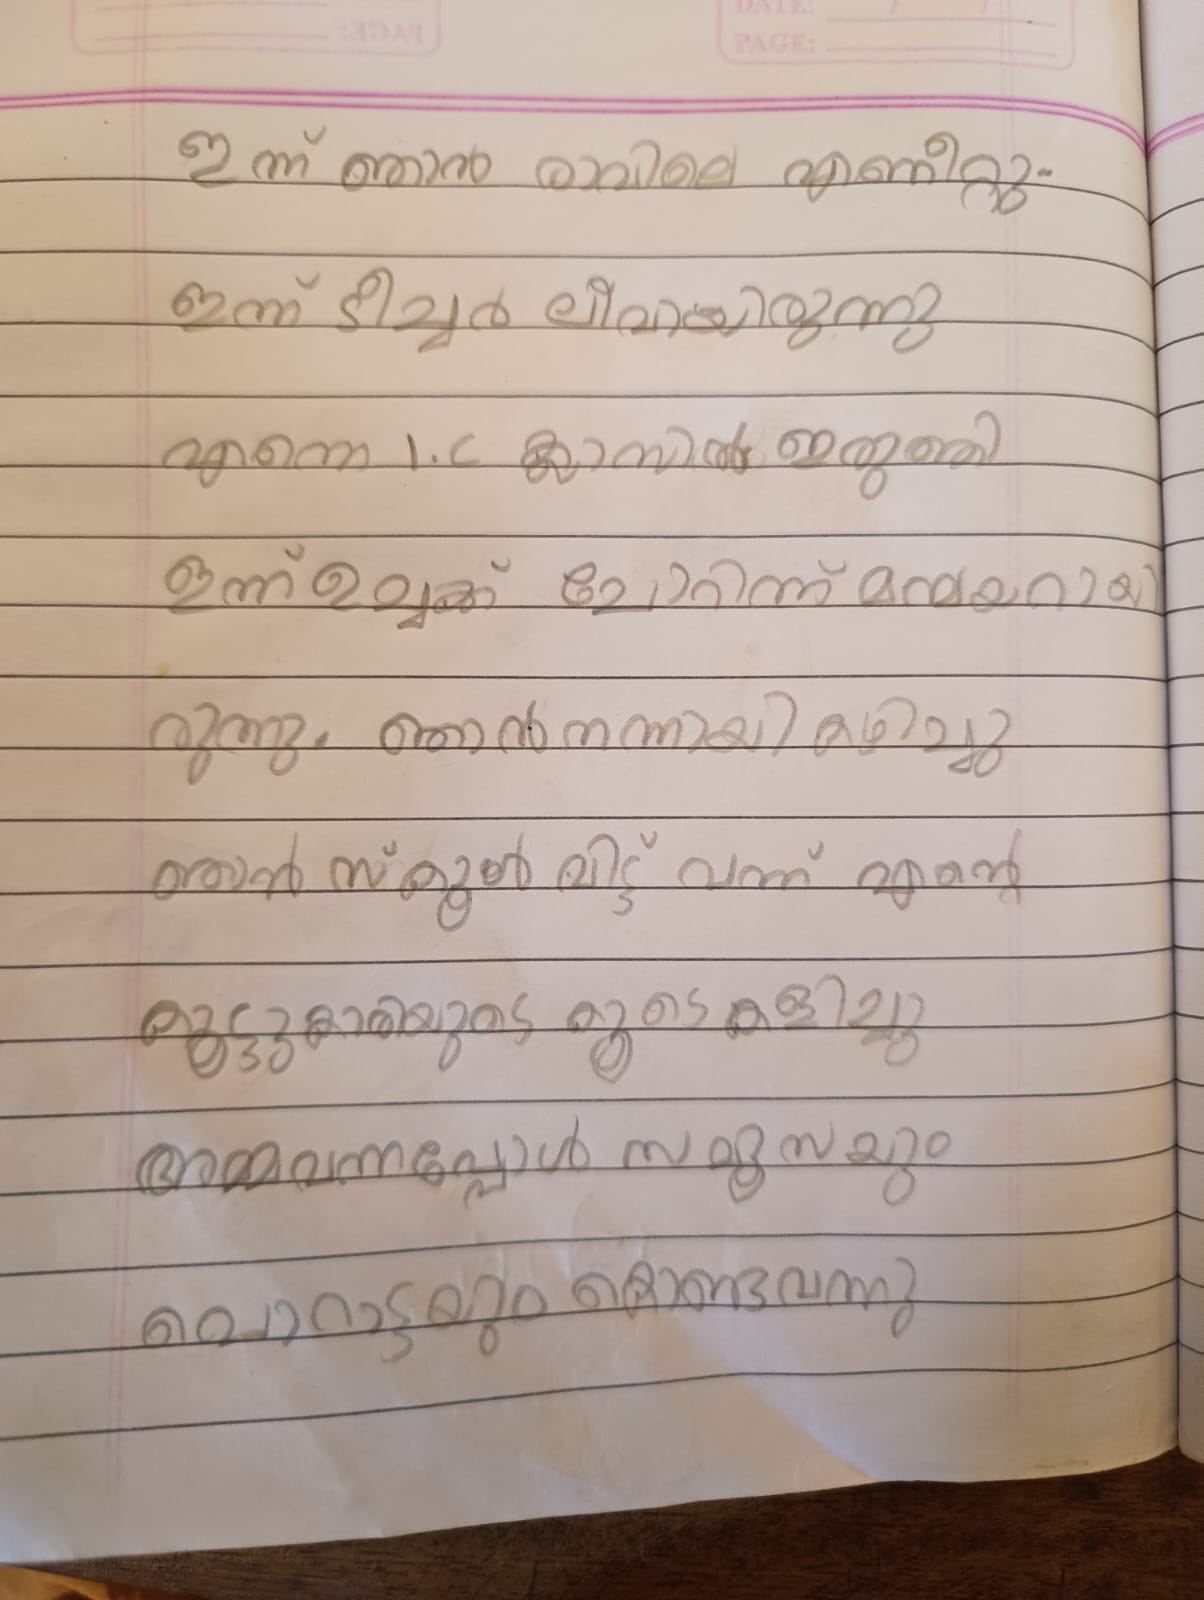 DATE:
PAGE:
ഇന്ന് ഞാൻ രാവിലെ എണീറ്റു.
ഇന്ന് ടീച്ചർ ലീവായിരുന്നു
എന്നെ 1.C ക്ലാസിൽ ഇരുത്തി
ഇന്ന് ഉച്ചക്ക് ചോറിന് പയറായി
രുന്നു. ഞാൻ നന്നായി കഴിച്ചു
ഞാൻ സ്കൂൾ വിട്ട് വന്ന് എന്റെ
കൂട്ടുകാരിയുടെ കൂടെ കളിച്ചു
അമ്മവന്നപ്പോൾ സമൂസയും
പൊറാട്ടയും കൊണ്ടവന്നു